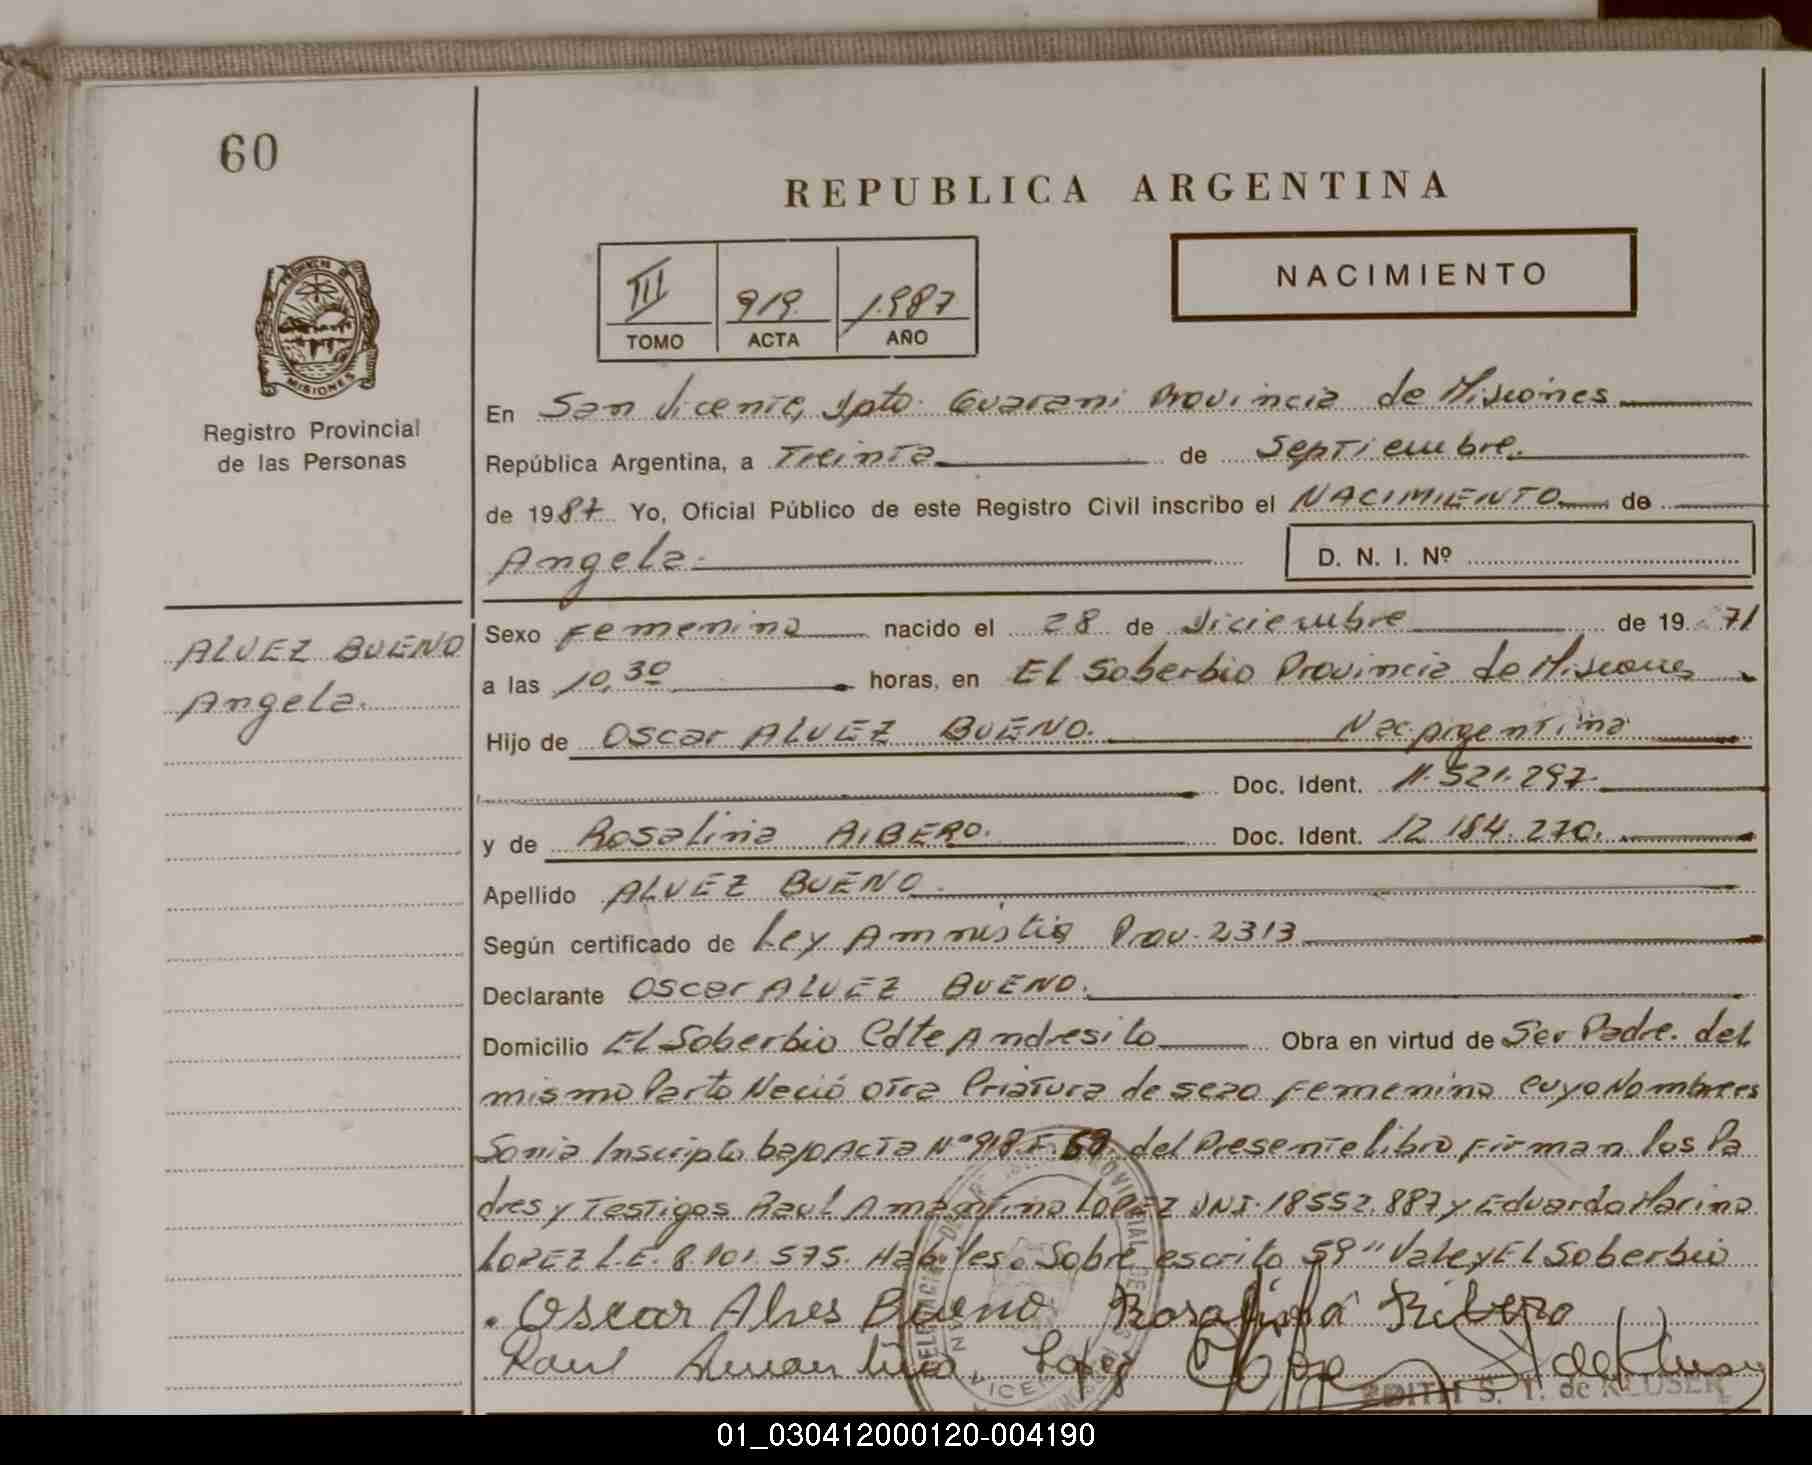 60
REPUBLICA ARGENTINA
NACIMIENTO
III 919. 1.987
TOMO ACTA AÑO
PROVINCIA DE
MISIONES
Registro Provincial
de las Personas
En San Vicente, Dpto. Guarani Provincia de Misiones
República Argentina, a Treinta de Septiembre.
de 1987. Yo, Oficial Público de este Registro Civil inscribo el NACIMIENTO de
Angela. D. N. I. Nº
ALVEZ BUENO
Angela.
Sexo Femenino nacido el 28 de Diciembre de 19 71
a las 10,30 horas, en El Soberbio Provincia de Misiones
Hijo de Oscar ALVEZ BUENO. Nac. Argentina
Doc. Ident. 11.521.297.
y de Rosalina RIBERO. Doc. Ident. 12.184.270.
Apellido ALVEZ BUENO.
Según certificado de Ley Amnistia Prov. 2313
Declarante Oscar ALVEZ BUENO.
Domicilio El Soberbio Cdte Andresito Obra en virtud de Ser Padre. del
mismo Parto Nació otra Criatura de sexo Femenino cuyo Nombre es
Sonia Inscripto bajo Acta Nº 918 F. 59. del Presente libro Firman los Pa
dres y Testigos Raul Amantino LOPEZ DNI. 18552.887 y Eduardo Marino
LOPEZ L.E. 8.101.575. Habiles. Sobre escrito 59" Vale y El Soberbio
. Oscar Alves Bueno Rosalina Ribero
Raul Amantino Lopez
EDITH S. T. de KEUSER
01_030412000120-004190